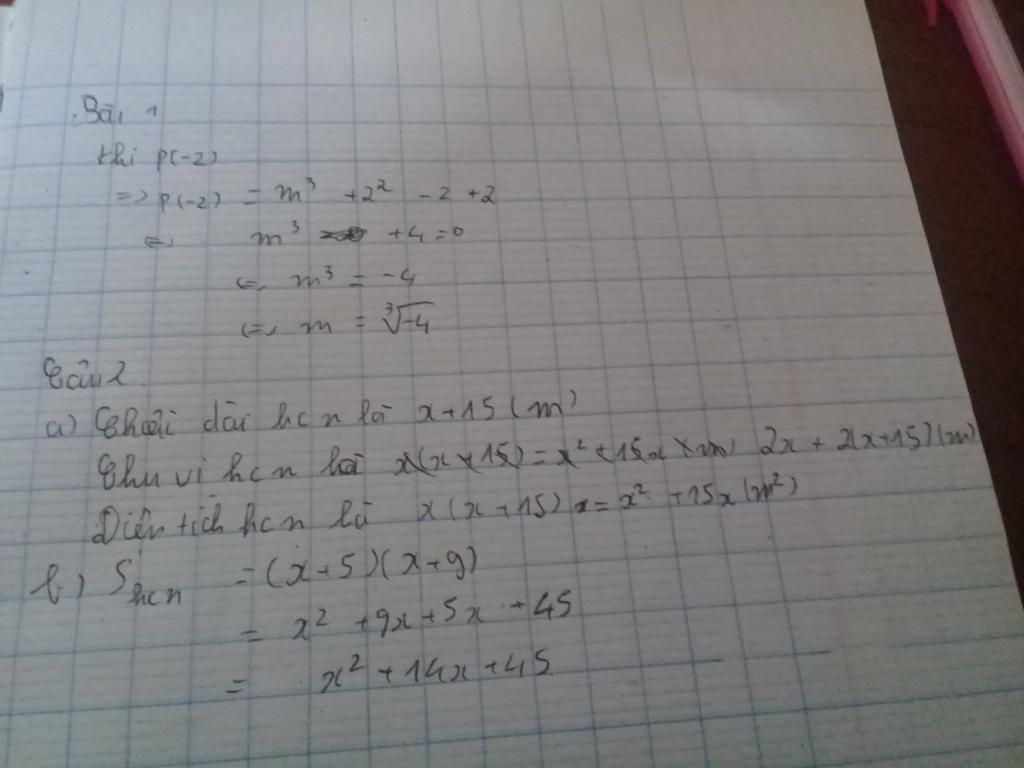 Bài 1
thì P(-2)
=> P(-2) = m³ + 2² - 2 + 2
<=> m³ + 4 = 0
<=> m³ = -4
<=> m = ∛-4
Câu 2
a) Chiều dài hcn là x + 15 (m)
Chu vi hcn là x(x + 15) = x² + 15x 2x + 2(x + 15) (m)
Diện tích hcn là x(x + 15) = x² + 15x (m²)
b) S hcn = (x + 5)(x + 9)
= x² + 9x + 5x + 45
= x² + 14x + 45